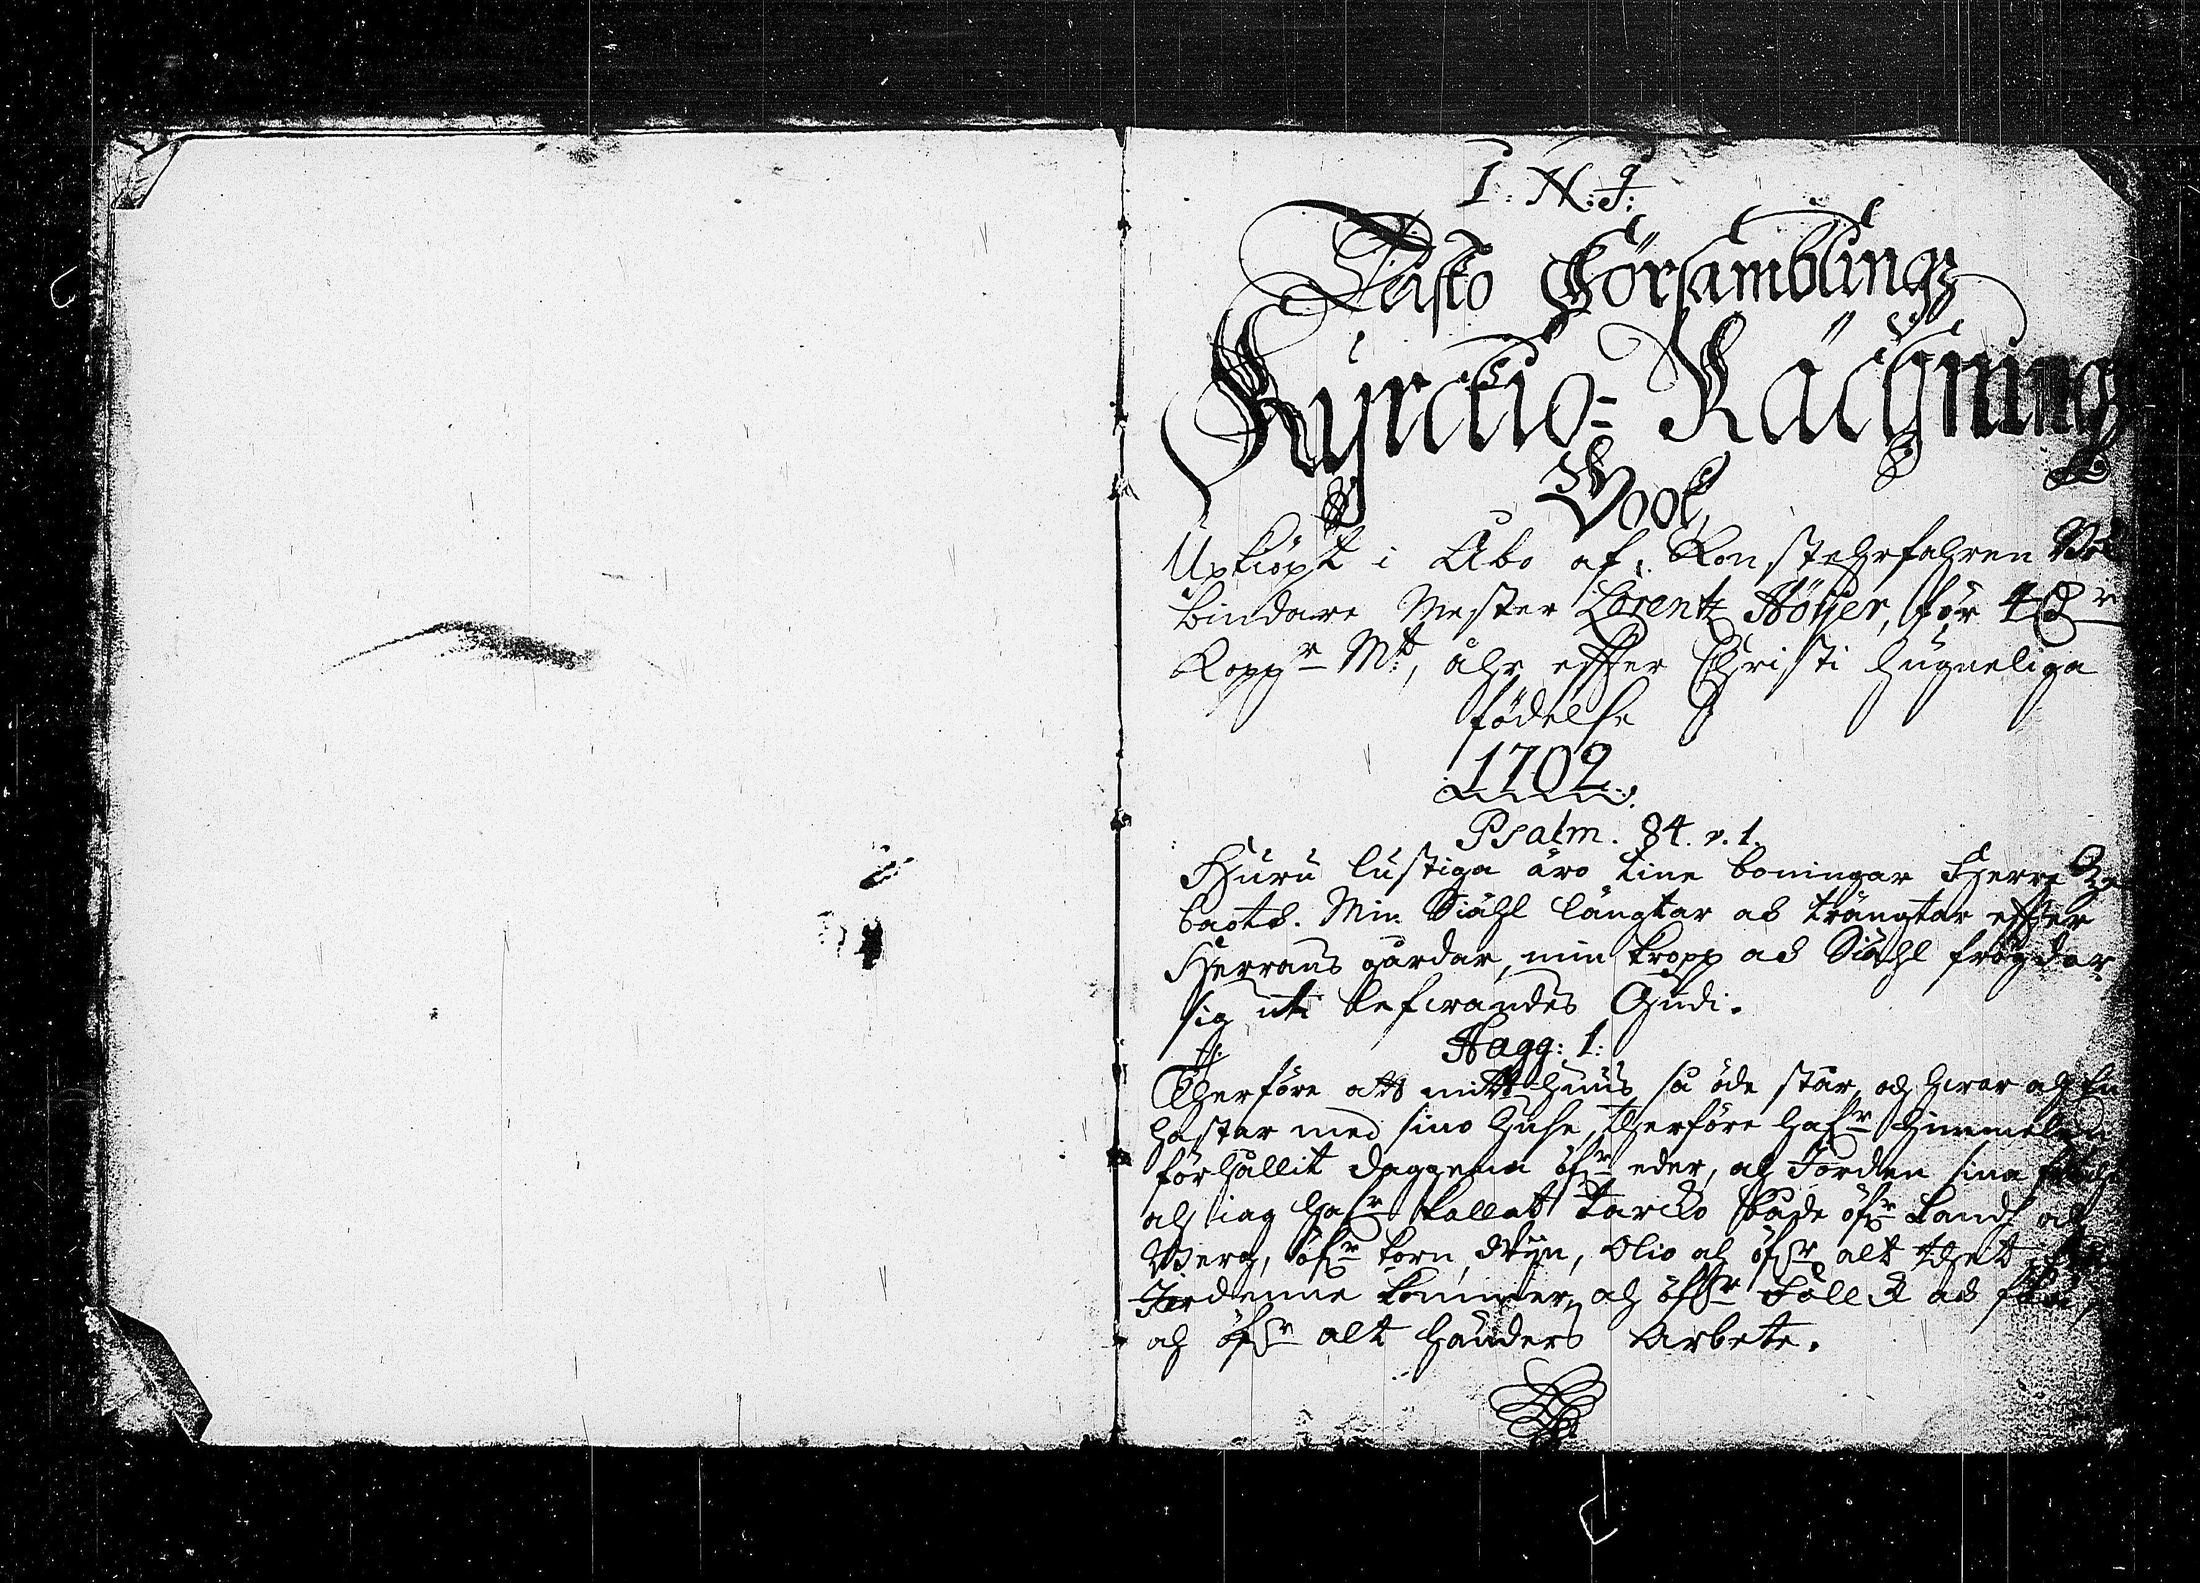 I: N: J:
Tusko Församblings
Kyrckio-Räckning
Book,
Upkiöpt i Åbo af Konstehrfahren Bok
bindare Mester Lorentz Höijer, för 4 Dr
Koppr Mt, åhr effter Christi hugneliga
födelse
1702.
Psalm. 84. v. 1.
Huru lustiga äro tine boningar Herre Ze
baoth. Min Siähl längtar och trängtar effter
Herrans gårdar, min kropp och Siähl frögdar
sig uti lefwandes Gudi.
Hagg: 1:
Therföre att mitt huus så öde står, och hwar och en
hastar med sino huse, therföre hafr Himmelen
förhållit daggena öfr eder, och Jorden sina frucht
och iag hafr kallat Tårcko både öfr land och
Berg, öfr korn, Wijn, Olio och öfr alt thet
Jordenne kommer, och öfr Folck och fää,
och öfr alt händers Arbete.